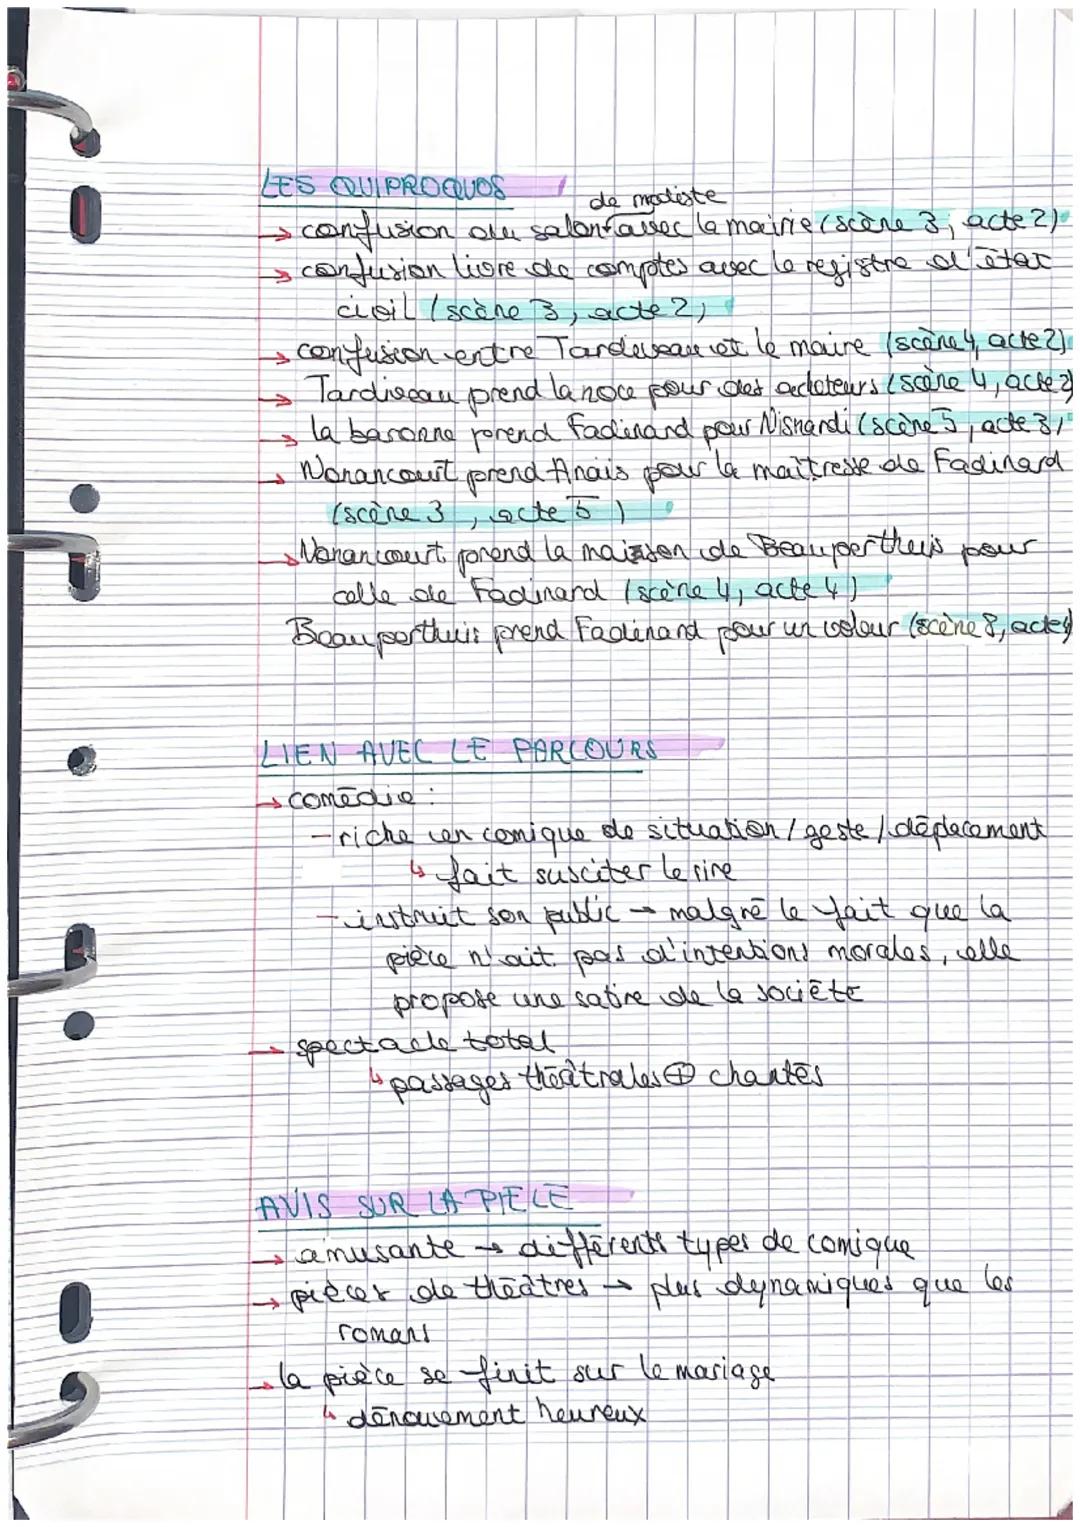 LES QUIPROQUOS
de modiste
→ confusion du salon avec la mairie (scène 3, acte 2)
→ confusion livre de comptes avec le registre d'état
civil (scène 3, acte 2)
→ confusion entre Tardiveau et le maire (scène 4, acte 2)
→ Tardiveau prend la noce pour des acheteurs (scène 4, acte 2)
→ la baronne prend Fadinard pour Nisnardi (scène 5, acte 3)
→ Nonancourt prend Anaïs pour la maîtresse de Fadinard
(scène 3, acte 5)
→ Nonancourt prend la maison de Beauperthuis pour
celle de Fadinard (scène 4, acte 4)
Beauperthuis prend Fadinard pour un voleur (scène 8, acte
LIEN AVEC LE PARCOURS
→ comédie :
- riche en comique de situation / geste / déplacement
↳ fait susciter le rire
- instruit son public → malgré le fait que la
pièce n'ait pas d'intentions morales, elle
propose une satire de la société
→ spectacle total
↳ passages théâtrales ⊕ chantés
AVIS SUR LA PIECE
→ amusante → différents types de comique
→ pièces de théâtres → plus dynamiques que les
romans
→ la pièce se finit sur le mariage
↳ dénouement heureux